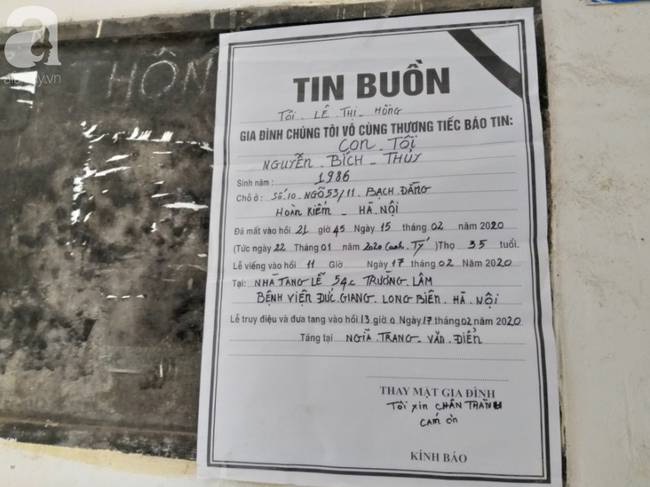 a
afamily.vn
THÔN
TIN BUỒN
TÔI LÊ THỊ HỒNG
GIA ĐÌNH CHÚNG TÔI VÔ CÙNG THƯƠNG TIẾC BÁO TIN:
CON TÔI
NGUYỄN BÍCH THỦY
Sinh năm: 1986
Chỗ ở: SỐ 10 NGÕ 53/11 BẠCH ĐẰNG
HOÀN KIẾM - HÀ NỘI
Đã mất vào hồi 21 giờ 45 Ngày 15 tháng 02 năm 2020
(Tức ngày 22 Tháng 01 năm 2020 (Canh Tý) Thọ 35 tuổi.
Lễ viếng vào hồi 11 Giờ Ngày 17 tháng 02 Năm 2020
Tại: NHÀ TANG LỄ 54c TRƯỜNG LÂM
BỆNH VIỆN ĐỨC GIANG LONG BIÊN HÀ NỘI
Lễ truy điệu và đưa tang vào hồi 13 giờ 0 Ngày 17 tháng 02 năm 2020
Táng tại NGHĨA TRANG VĂN ĐIỂN
THAY MẶT GIA ĐÌNH
Tôi xin CHÂN THÀNH
CẢM ƠN
KÍNH BÁO